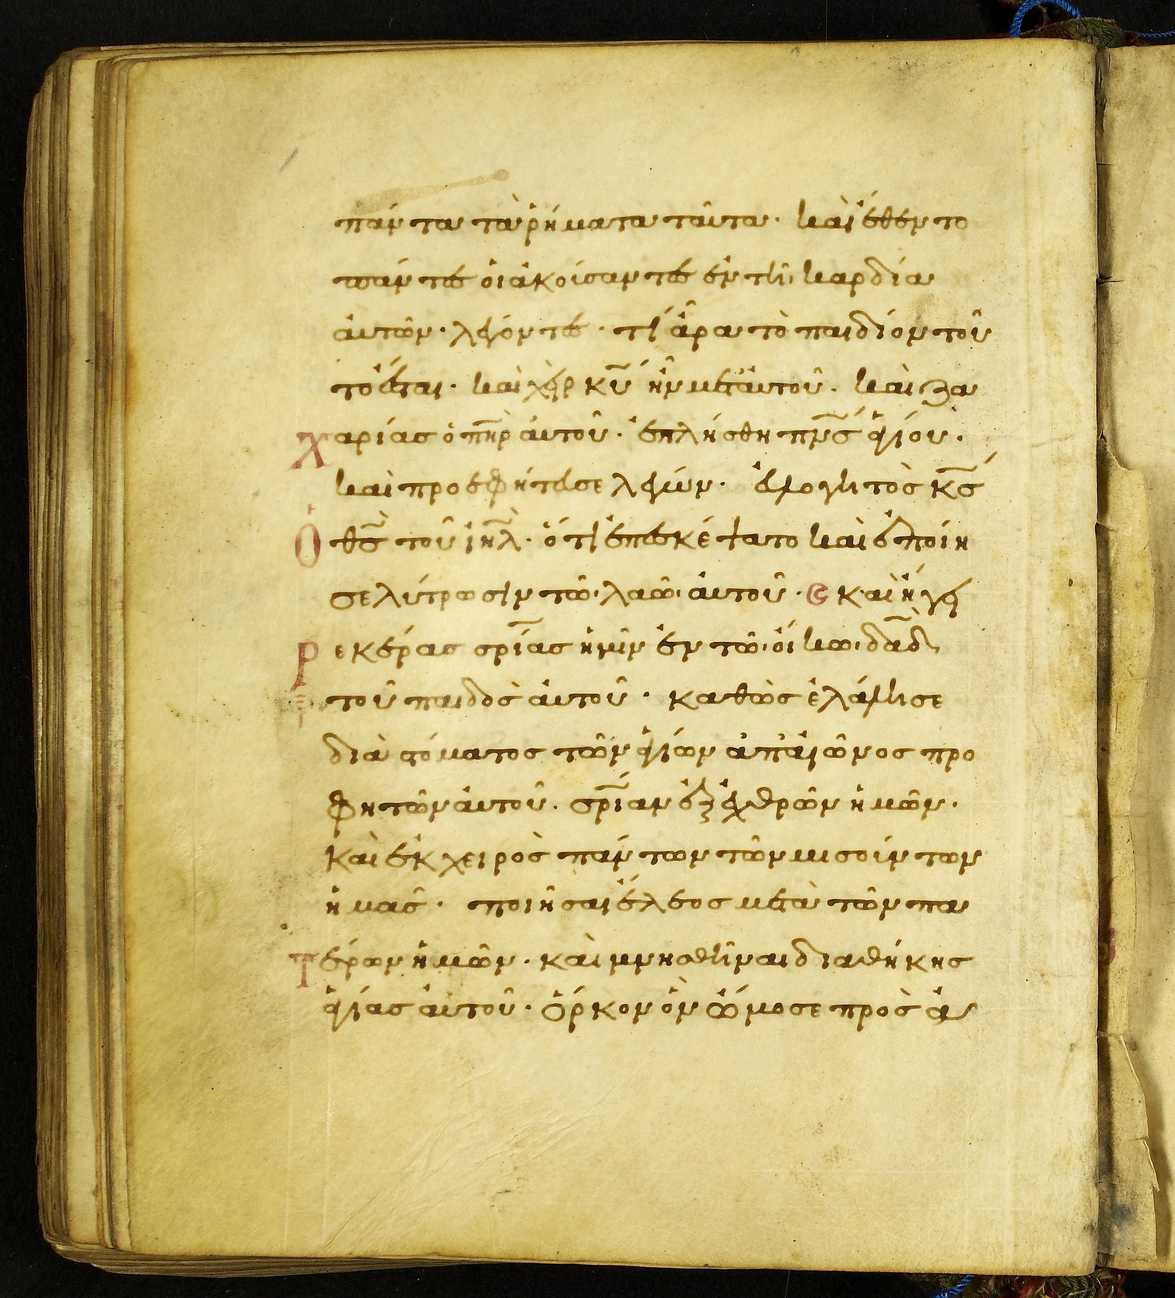 πάντα τὰ ῥήματα ταῦτα· καὶ ἔθεντο
πάντες οἱ ἀκούσαντες ἐν τῆι καρδία
αὐτῶν· λέγοντες· τί ἄρα τὸ παιδίον τοῦ
το ἔσται· καὶ χεὶρ κ̅υ̅ ἦν μετ' αὐτοῦ· καὶ ζα
χαρίας ὁ π̅η̅ρ αὐτοῦ· ἐπλήσθη π̅ν̅ς ἁγίου·
καὶ προεφήτευσε λέγων· εὐλογητὸς κ̅ς̅
ὁ θ̅ς̅ τοῦ ι̅η̅λ· ὅτι ἐπεσκέψατο καὶ ἐποίη
σε λύτρωσιν τῶ λαῶ αὐτοῦ· καὶ ἤγει
ρε κέρας σ̅ρ̅ίας ἡμῖν ἐν τῶ οἴκω δ̅α̅δ
τοῦ παιδὸς αὐτοῦ· καθὼς ἐλάλησε
διὰ στόματος τῶν ἁγίων ἀπ' αἰῶνος προ
φητῶν αὐτοῦ· σ̅ρ̅ίαν ἐξ ἐχθρῶν ἡμῶν·
καὶ ἐκ χειρὸς πάντων τῶν μισούντων
ἡμᾶς· ποιῆσαι ἔλεος μετὰ τῶν πα
τέρων ἡμῶν· καὶ μνησθῆναι διαθήκης
ἁγίας αὐτοῦ· ὅρκον ὃν ὤμοσε πρὸς ἀ